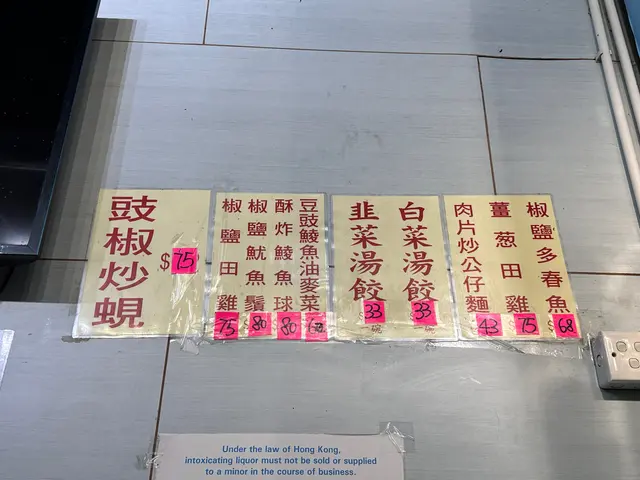 豉椒炒蜆
$75
豆豉鯪魚油麥菜
酥炸鯪魚球
80
椒鹽魷魚鬚
80
椒鹽田雞
75
白菜湯餃
33
碗
韭菜湯餃
33
碗
椒鹽多春魚
$68
薑葱田雞
75
肉片炒公仔麵
43
Under the law of Hong Kong,
intoxicating liquor must not be sold or supplied
to a minor in the course of business.